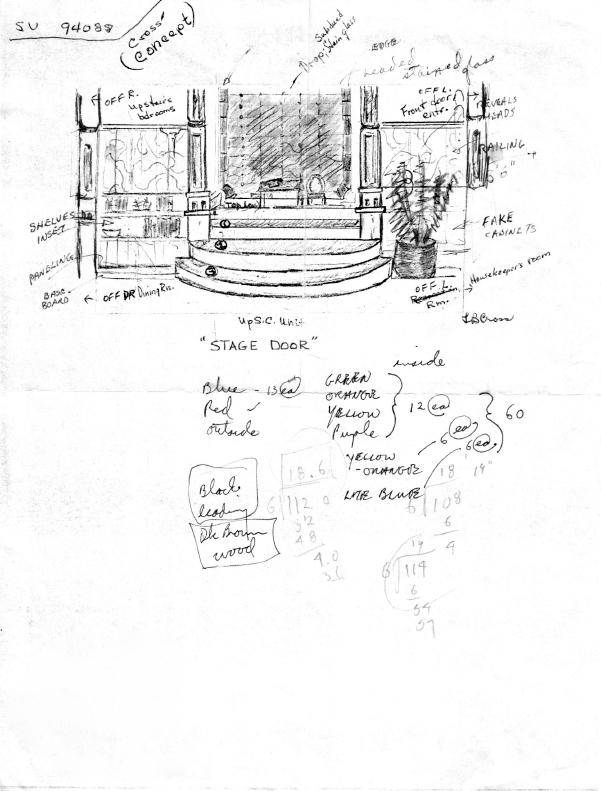 SU 94088
Cross
(Concept)
Subdued
Drop, Stain glass
EDGE
Leaded
stained glass
OFF R.
Upstairs
bdrooms
OFF L.
Front door
entr.
REVEALS
BEADS
RAILING
SHELVES
INSET
FAKE
CABINETS
PANELING
BASE
BOARD
← OFF DR Dining Rm.
OFF L.
Rm.
Housekeeper's room
Up S.C. Unit
LBCross
"STAGE DOOR"
inside
Blue - 13 ea
Red ✓
outside
GREEN
ORANGE
YELLOW
Purple
12 ea
60
YELLOW
-ORANGE
6 ea
LITE BLUE
6 ea
Black
leading
Dk Brown
wood
18.6
6 112 0
52
48
4.0
3 6
18 19"
6 108
6
4
19
6 114
6
54
57